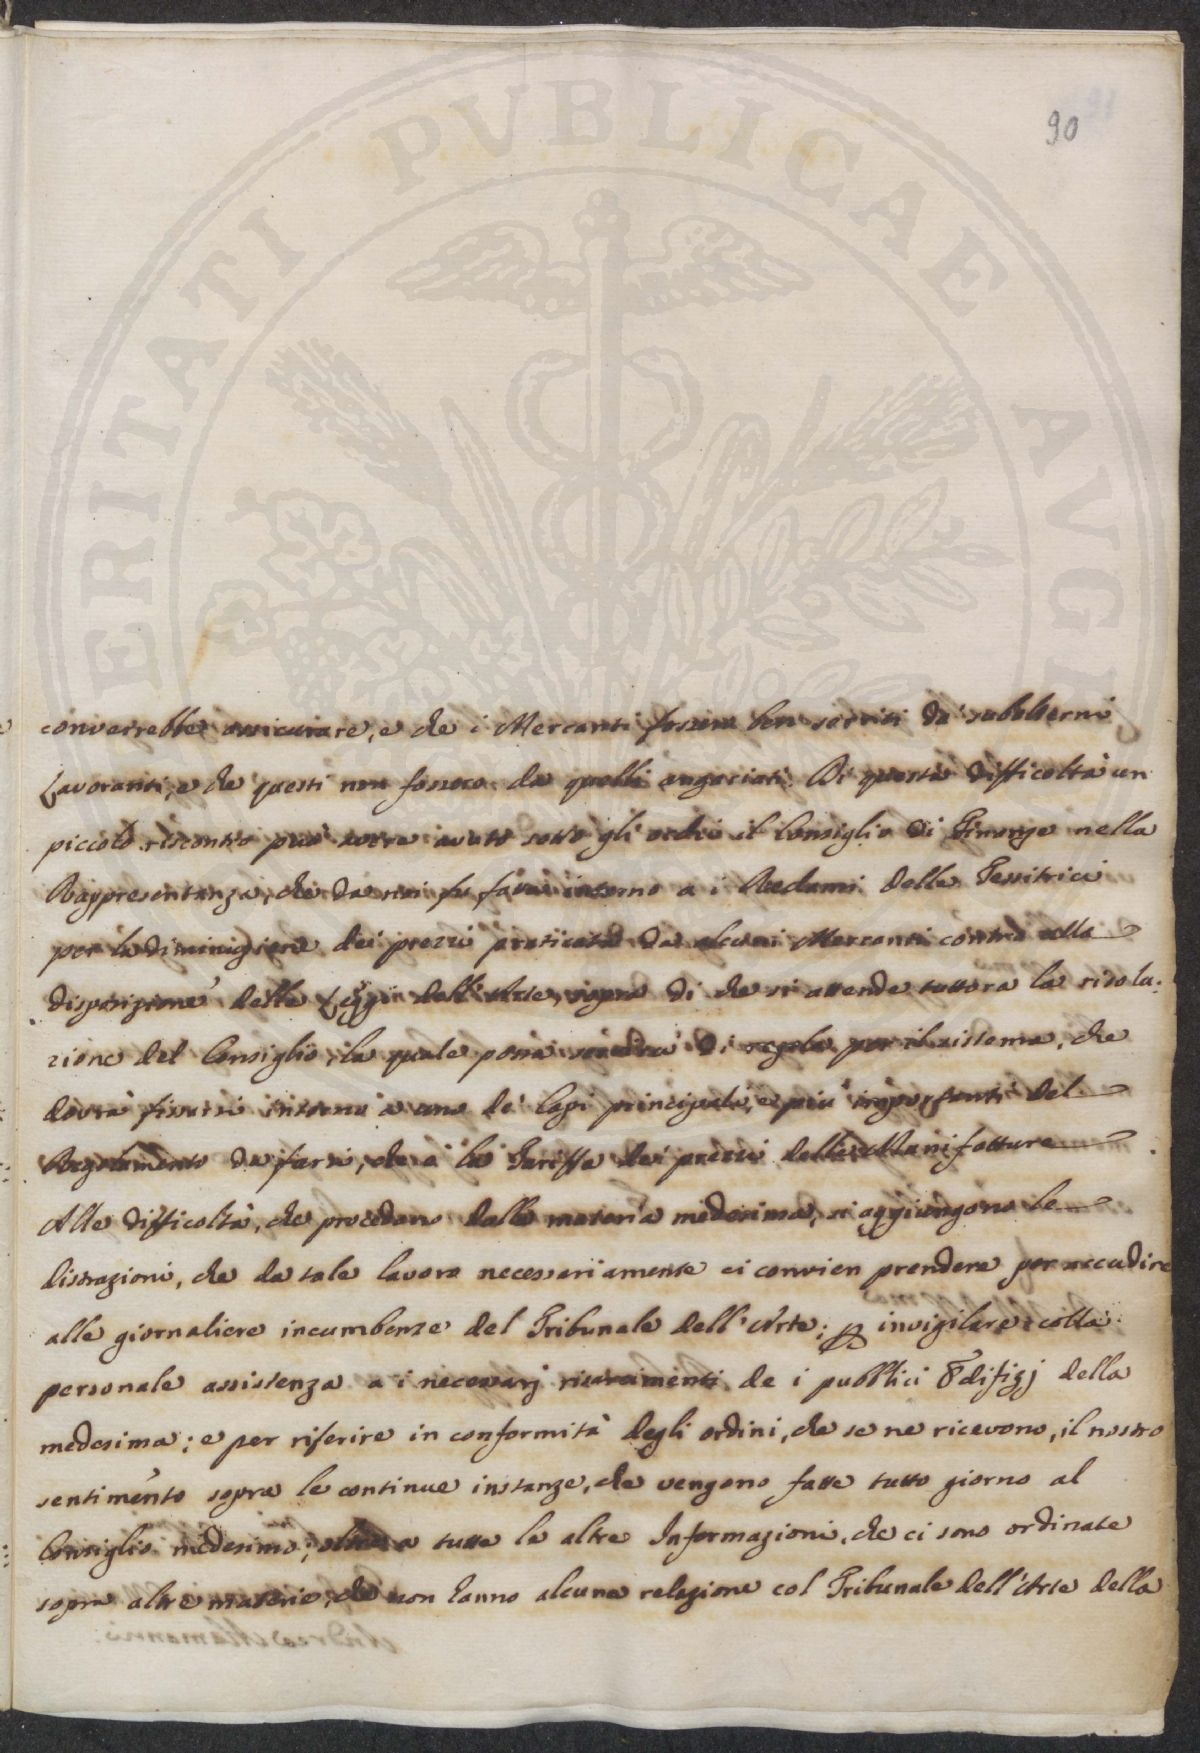 90
VERITATI PVBLICAE AVGE
converrebbe assicurare, e che i Mercanti fossero ben serviti da' subalterni
Lavoranti, e che questi non fossero da quelli angariati. Di questa difficoltà un
piccolo riscontro può avere avuto sotto gli occhi il Consiglio di Finanze nella
Rappresentanza, che da noi fu fatta intorno a i Reclami delle Tessitrici
per la diminuzione dei prezzi praticata da alcuni Mercanti contro alla
disposizione delle Leggi dell'Arte, sopra di che si attende tuttora la risolu-
zione del Consiglio, la quale possa servirci di regola per il sistema, che
dovrà fissarsi intorno a uno de' Capi principali, e più importanti del
Regolamento da farsi, che è la Tariffa dei prezzi delle Manifatture
Alle difficoltà, che procedono dalla materia medesima, si aggiungono le
distrazioni, che da tale lavoro necessariamente ci convien prendere per accudire
alle giornaliere incumbenze del Tribunale dell'Arte; p invigilare colla
personale assistenza a i necessarj risarcimenti de i pubblici Edifizj della
medesima; e per riferire in conformità degli ordini, che se ne ricevono, il nostro
sentimento sopra le continue instanze, che vengono fatte tutto giorno al
Consiglio medesimo; oltre a tutte le altre Informazioni, che ci sono ordinate
sopra altre materie, che non hanno alcuna relazione col Tribunale dell'Arte della